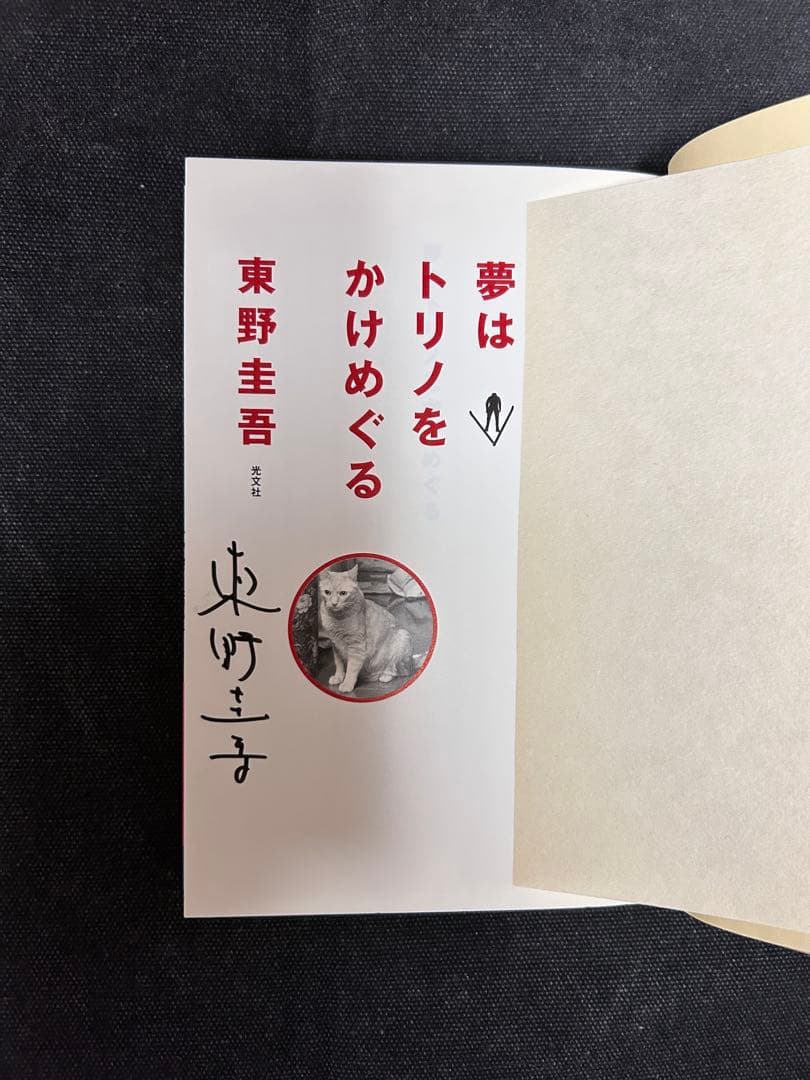 夢は
トリノを
かけめぐる
東野圭吾
光文社
東野圭吾